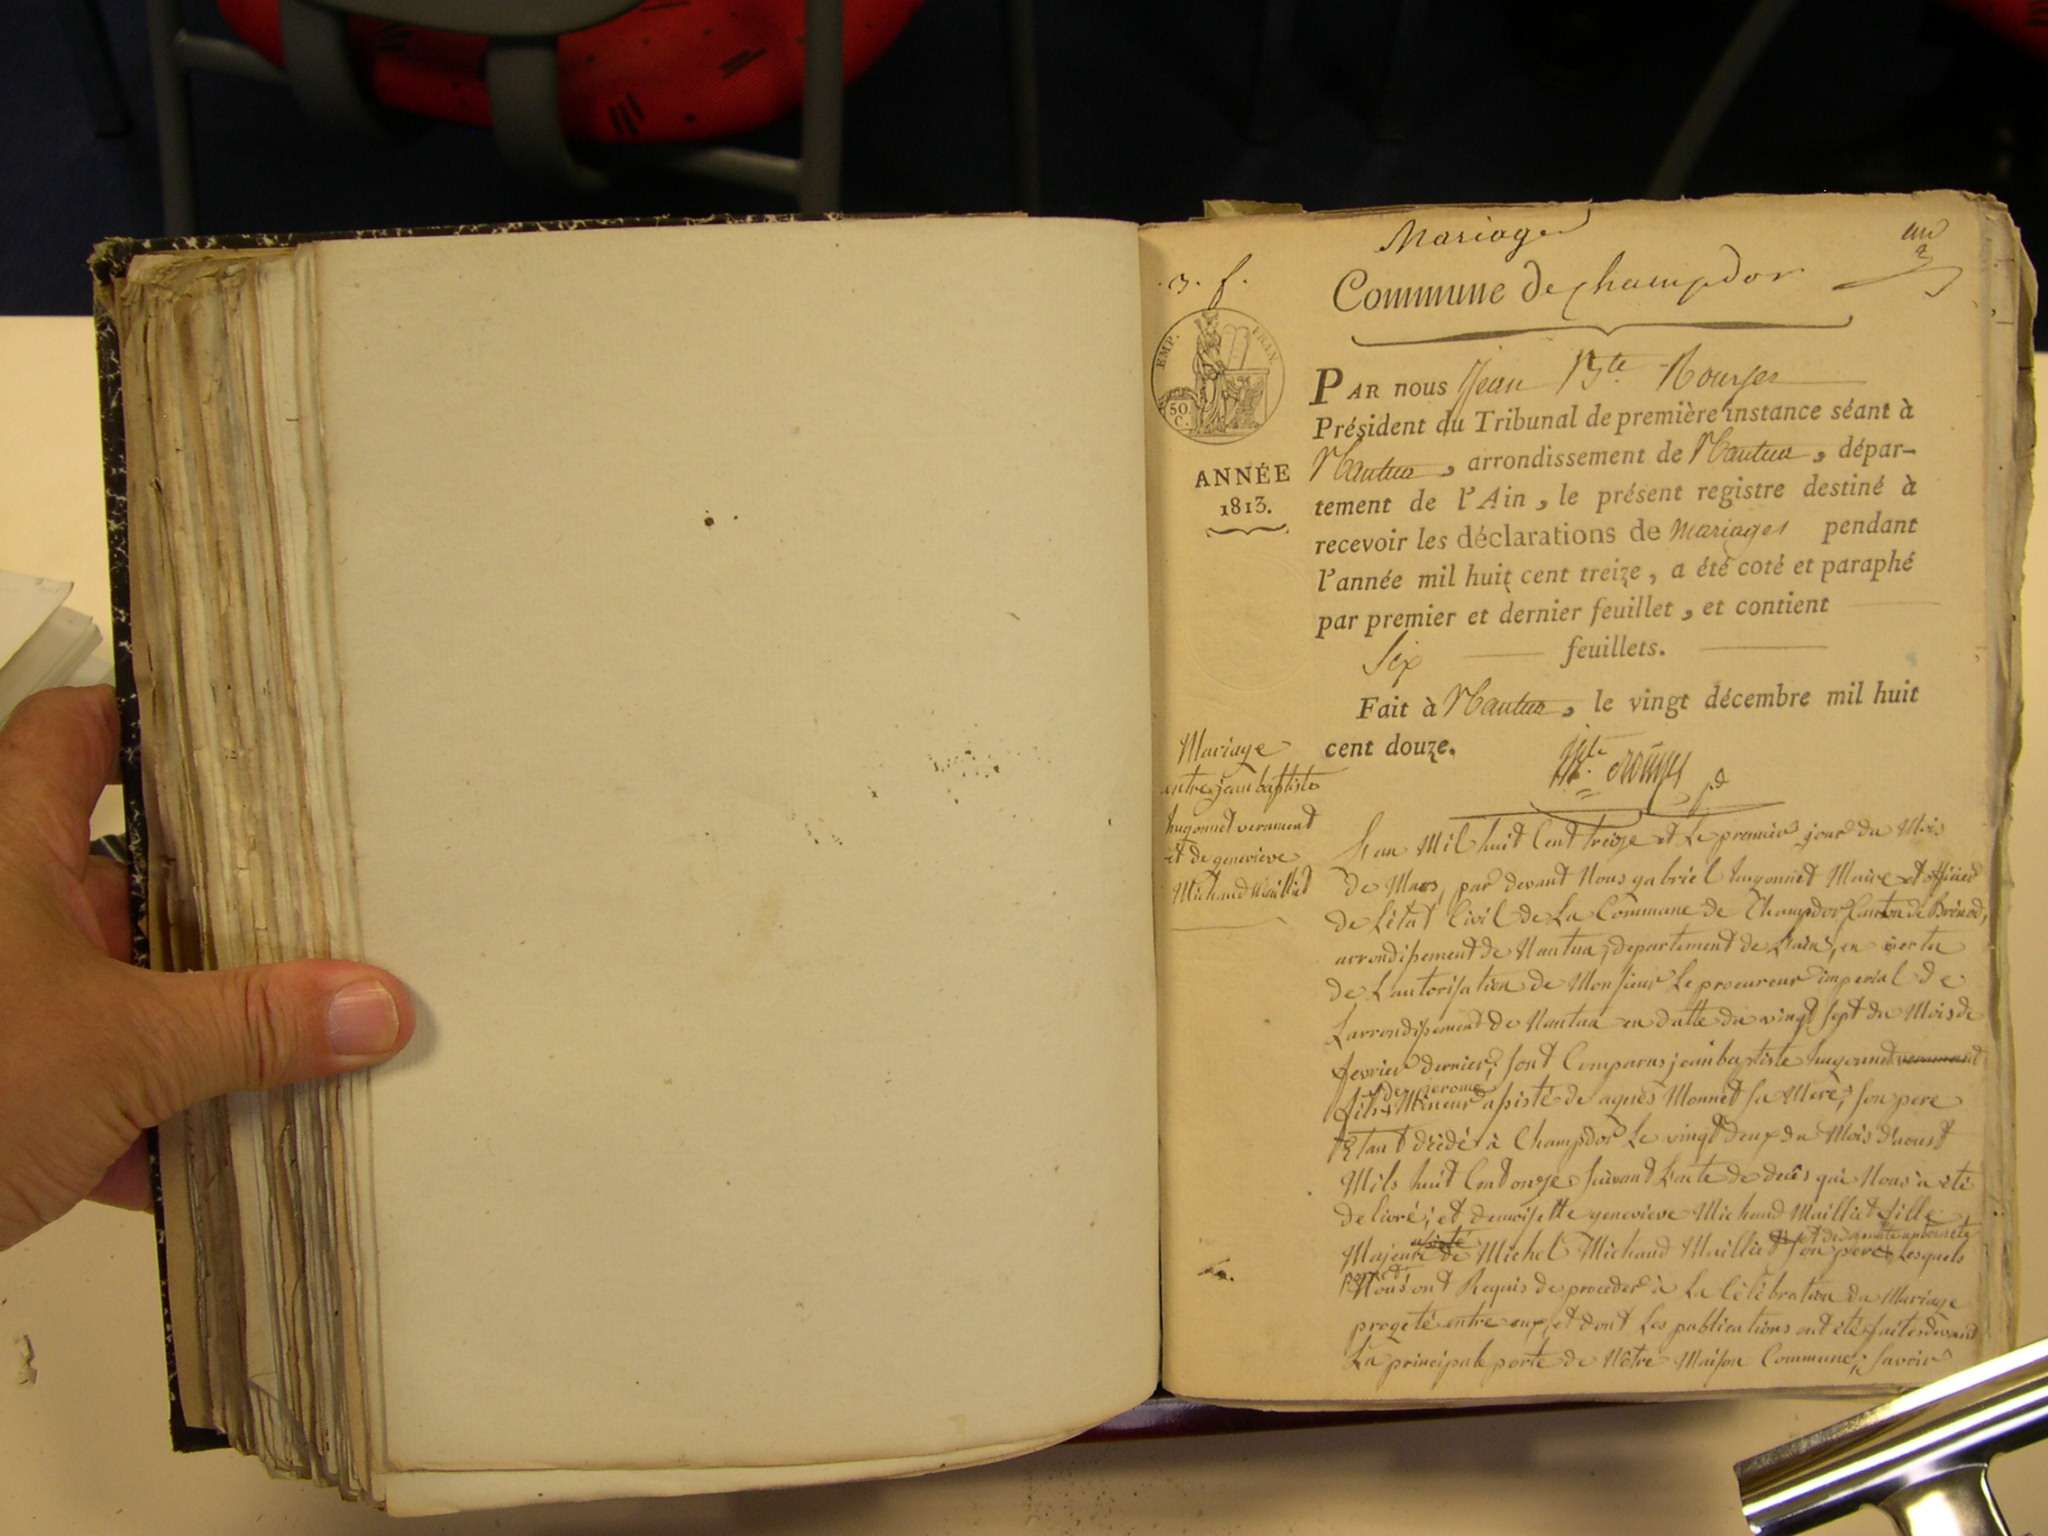 Mariages
un
3. f.
Commune de Champdor
EMP. FRAN.
50 C.
ANNÉE
1813.
PAR nous Jean Bte Rouyer
Président du Tribunal de première instance séant à
Nantua, arrondissement de Nantua, dépar-
tement de l'Ain, le présent registre destiné à
recevoir les déclarations de Mariages pendant
l'année mil huit cent treize, a été coté et paraphé
par premier et dernier feuillet, et contient
Six feuillets.
Fait à Nantua, le vingt décembre mil huit
cent douze.
Mariage
entre jean baptiste
hugonnet verament
et de genevieve
Michaud Mailliet
L'an Mil huit Cent treize et Le premier jour du Mois
de Mars, par devant Nous gabriel hugonnet Maire et officier
de L'état Civil de La Commune de Champdor Canton de Brénod,
arrondissement de Nantua, departement de L'ain, en vertu
de L'autorisation de Monsieur Le procureur imperial de
L'arrondissement de Nantua en datte du vingt sept du Mois de
fevrier dernier; sont Comparus jean baptiste hugonnet verament
de jerome
fils Mineur assisté de agnès Monnet sa Mere, son pere
Etant décédé à Champdor Le vingt deux du Mois d'aoust
Mils huit Cent onze suivant L'acte de decès qui Nous à été
delivré; et demoiselle genevieve Michaud Mailliet fille
Majeure de Michel Michaud Mailliet son pere Lesquels
Nous ont Requis de proceder à La Célébration du Mariage
progeté entre eux, et dont Les publications ont été faites devant
La principale porte de Nôtre Maison Commune; savoir